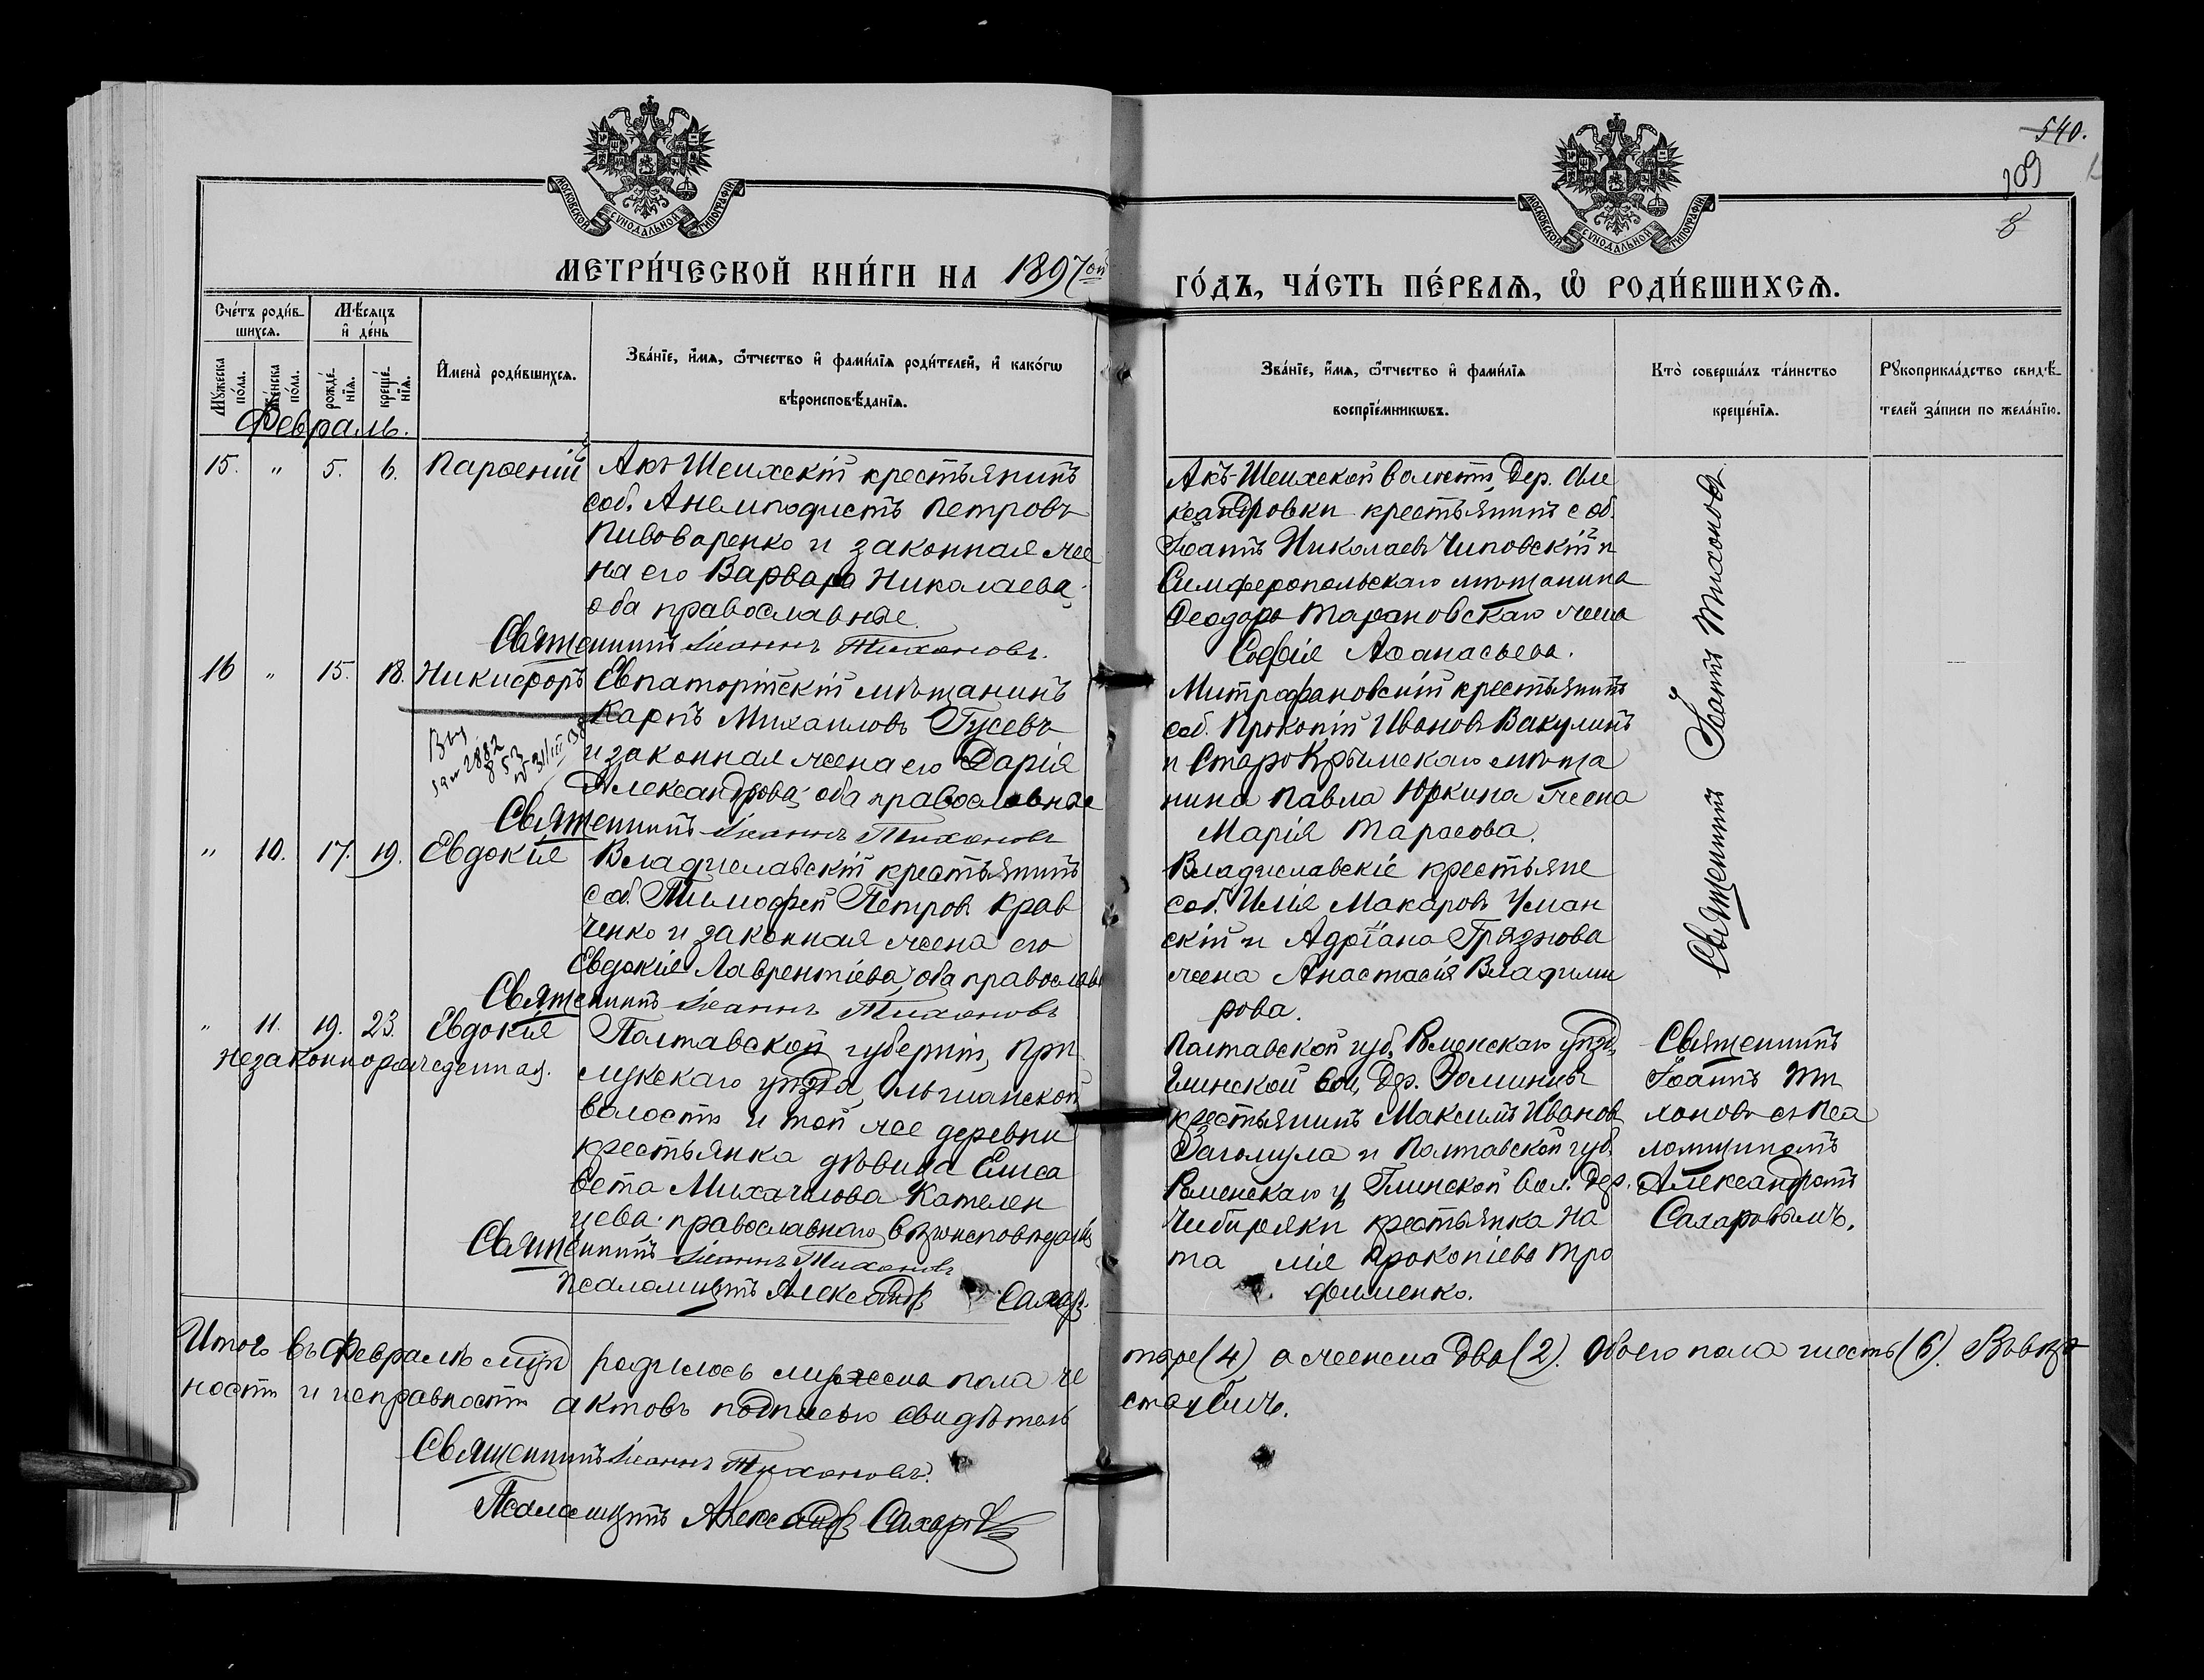 540.
109
8
МОСКОВСКОЙ СѴНОДАЛЬНОЙ ТИПОГРАФІИ
МОСКОВСКОЙ СѴНОДАЛЬНОЙ ТИПОГРАФІИ
МЕТРИ́ЧЕСКОЙ КНИ́ГИ НА 1897ой
ГО́ДЪ, ЧА́СТЬ ПЕ́РВАѦ, Ѡ҆ РОДИ́ВШИХСѦ.
Сче́тъ роди́в-
шихсѧ.
Мѣ́сѧцъ
и҆ де́нь
Мꙋ́жеска по́ла.
Же́нска по́ла.
рожде́-нїѧ.
креще́-нїѧ.
И҆мена̀ роди́вшихсѧ.
Зва́нїе, и҆́мѧ, ѻ҆́тчество и҆ фами́лїѧ роди́телей, и҆ како́гѡ
вѣроисповѣ́данїѧ.
Зва́нїе, и҆́мѧ, ѻ҆́тчество и҆ фами́лїѧ
воспрїе́мникѡвъ.
Кто̀ соверша́лъ та́инство
креще́нїѧ.
Рꙋкоприкла́дство свидѣ́-
телей за́писи по жела́нїю.
Февраль.
15. " 5. 6. Парѳеній
Акъ-Шеихскій крестьянинъ
соб. Анемподистъ Петровъ
Пивоваренко и законная же
на его Варвара Николаева
оба православные.
Священникъ Іоаннъ Тихоновъ.
Акъ-Шеихской волости, Дер. Але
ксандровки крестьянинъ соб.
Іоаннъ Николаевъ Чиповскій и
Симферопольскаго мѣщанина
Ѳеодора Тарановскаго жена
Софія Аѳанасьева.
16 " 15. 18. Никифоръ
Евпаторійскій мѣщанинъ
Карпъ Михаиловъ Гусевъ
и законная жена его Дарія
Александрова, оба православные
Священникъ Іоаннъ Тихоновъ
Митрофановскій крестьянинъ
соб. Прокопій Ивановъ Вакулинъ
и Старокрымскаго мѣща
нина Павла Юркина жена
Марія Тарасова.
Священникъ Іоаннъ Тихоновъ
" 10. 17. 19. Евдокія
Владиславскій крестьянинъ
соб. Тимофей Петровъ Крав
ченко и законная жена его
Евдокія Лаврентіева, оба православ
Священникъ Іоаннъ Тихоновъ
Владиславскіе крестьяне
соб. Илія Макаровъ Уман
скій и Адріана Грязнова
жена Анастасія Владими
рова.
" 11. 19. 23. Евдокія
незаконнорожденная.
Полтавской губерніи, При
лукскаго уѣзда,
волости и той же деревни
крестьянка дѣвица Елиса
вета Михаилова Кателен
цева православнаго вѣроисповѣданія
Священникъ Іоаннъ Тихоновъ
Псаломщикъ Александръ Сахар.
Полтавской губ. Роменскаго уѣзд.
Глинской вол. Дер.
крестьянинъ Максимъ Ивановъ
Загомула и Полтавской губ.
Роменскаго у. Глинской Вол. Дер.
крестьянка На
та лія Прокопіева Тро
фименко.
Священникъ
Іоаннъ Ти
хоновъ съ Пса
ломщикомъ
Александромъ
Сахаровымъ.
Итого въ Февралѣ мѣс. родилось мужеска пола че
тыре (4) а женска два (2). Обоего пола шесть (6). Въ вѣр
ности и исправности актовъ подписью свидѣтель
ствуемъ.
Священникъ Іоаннъ Тихоновъ.
Псаломщикъ Александръ Сахаровъ